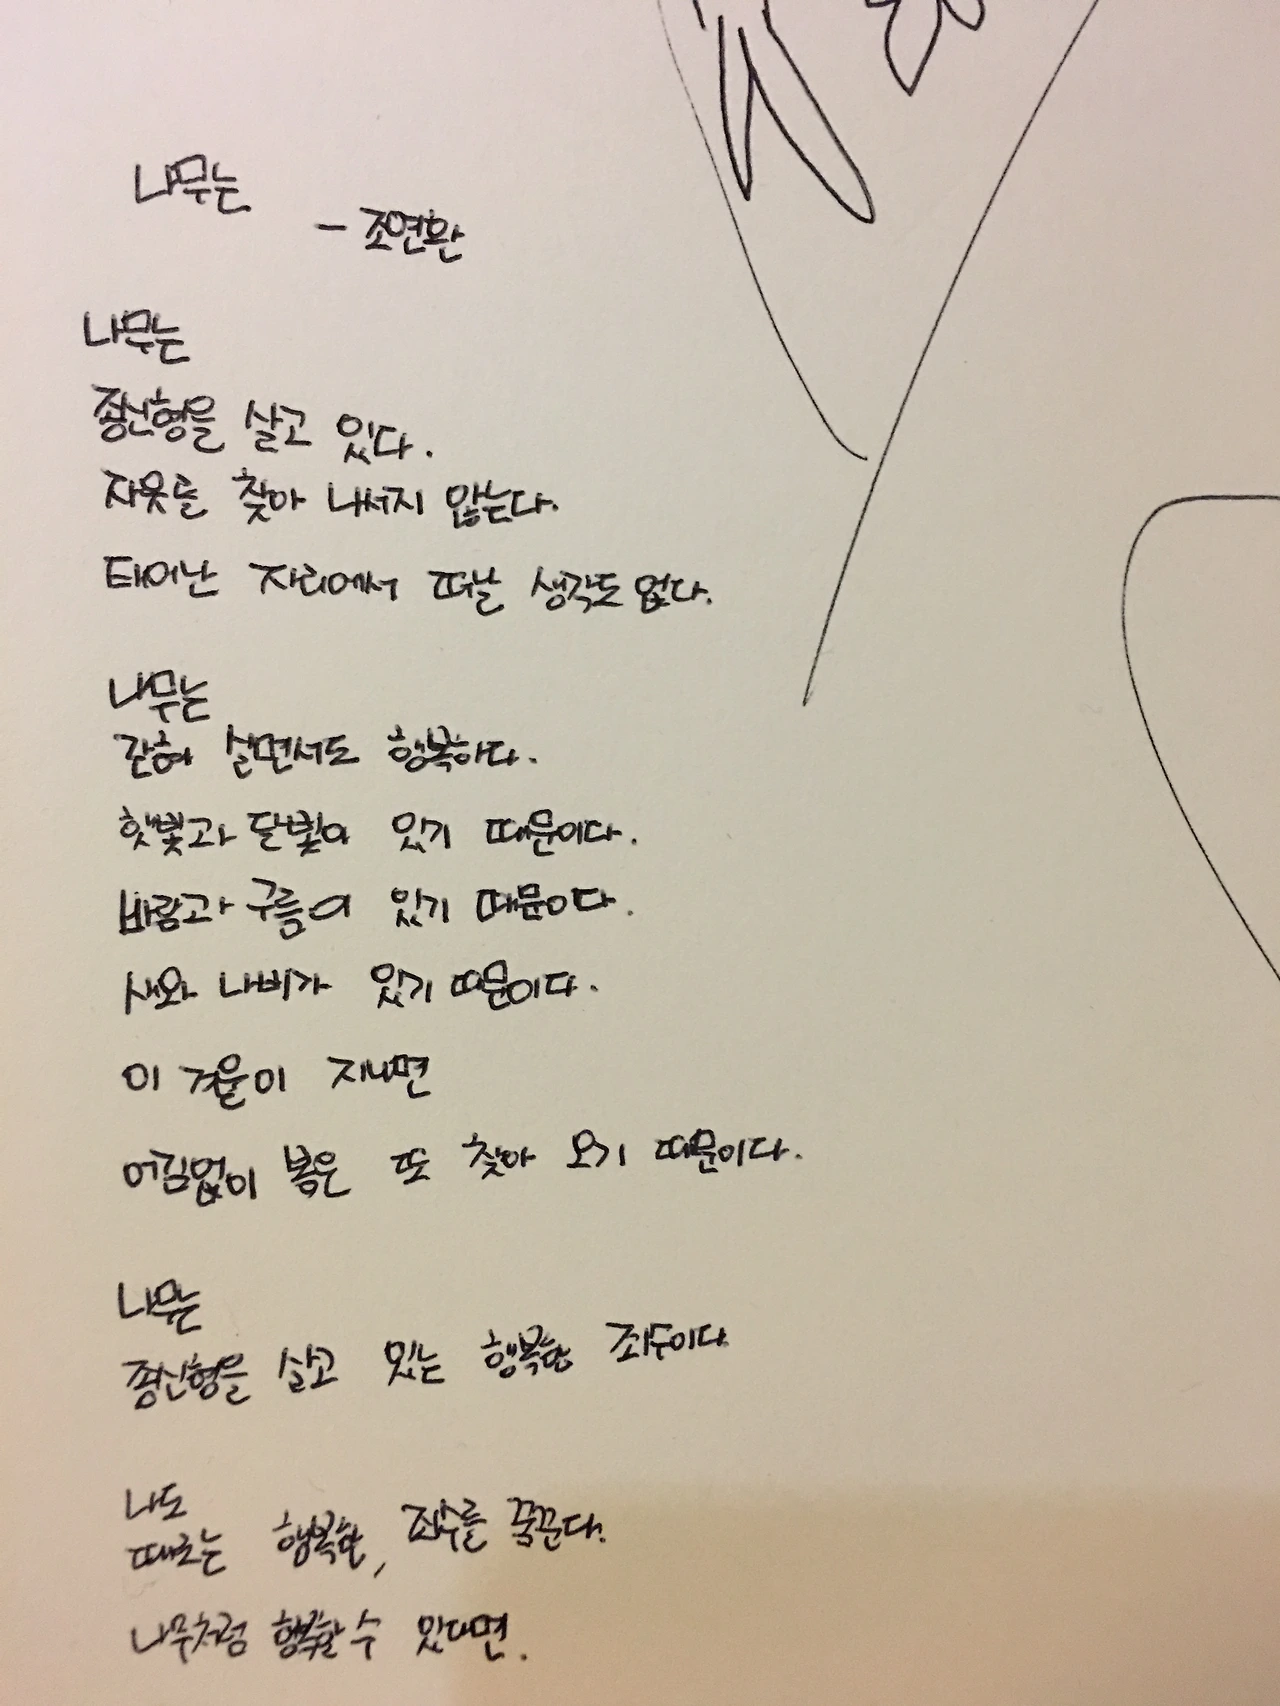 나무는
- 조연환
나무는
종신형을 살고 있다.
자웃를 찾아 나서지 않는다.
태어난 자리에서 떠날 생각도 없다.
나무는
갇혀 살면서도 행복하다.
햇빛과 달빛이 있기 때문이다.
바람과 구름이 있기 때문이다.
새와 나비가 있기 때문이다.
이 겨울이 지나면
어김없이 봄은 또 찾아 오기 때문이다.
나무는
종신형을 살고 있는 행복한 죄수이다
나도
때로는 행복한, 죄수를 꿈꾼다.
나무처럼 행복할 수 있다면.